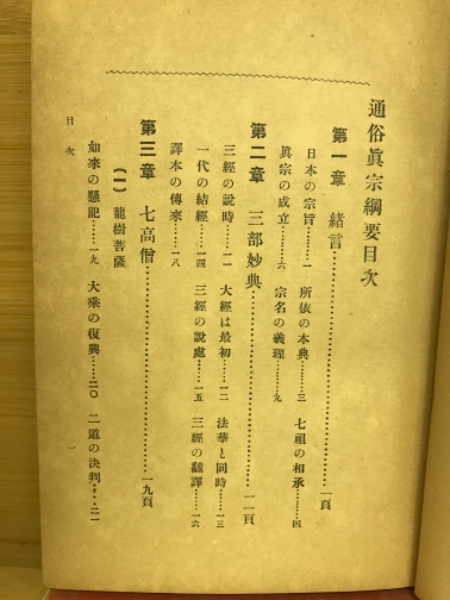 通俗眞宗綱要目次
第一章　緒言……………………一頁
日本の宗旨……一　所依の本典……三　七祖の相承……四
眞宗の成立……六　宗名の義理……九
第二章　三部妙典……………………一一頁
三經の說時……一一　大經は最初……一二　法華と同時……一三
一代の結經……一四　三經の說處……一五　三經の飜譯……一六
譯本の傳來……一八
第三章　七高僧……………………一九頁
（一）　龍樹菩薩
如來の懸記……一九　大乘の復興……二〇　二道の決判……二一
目次　一